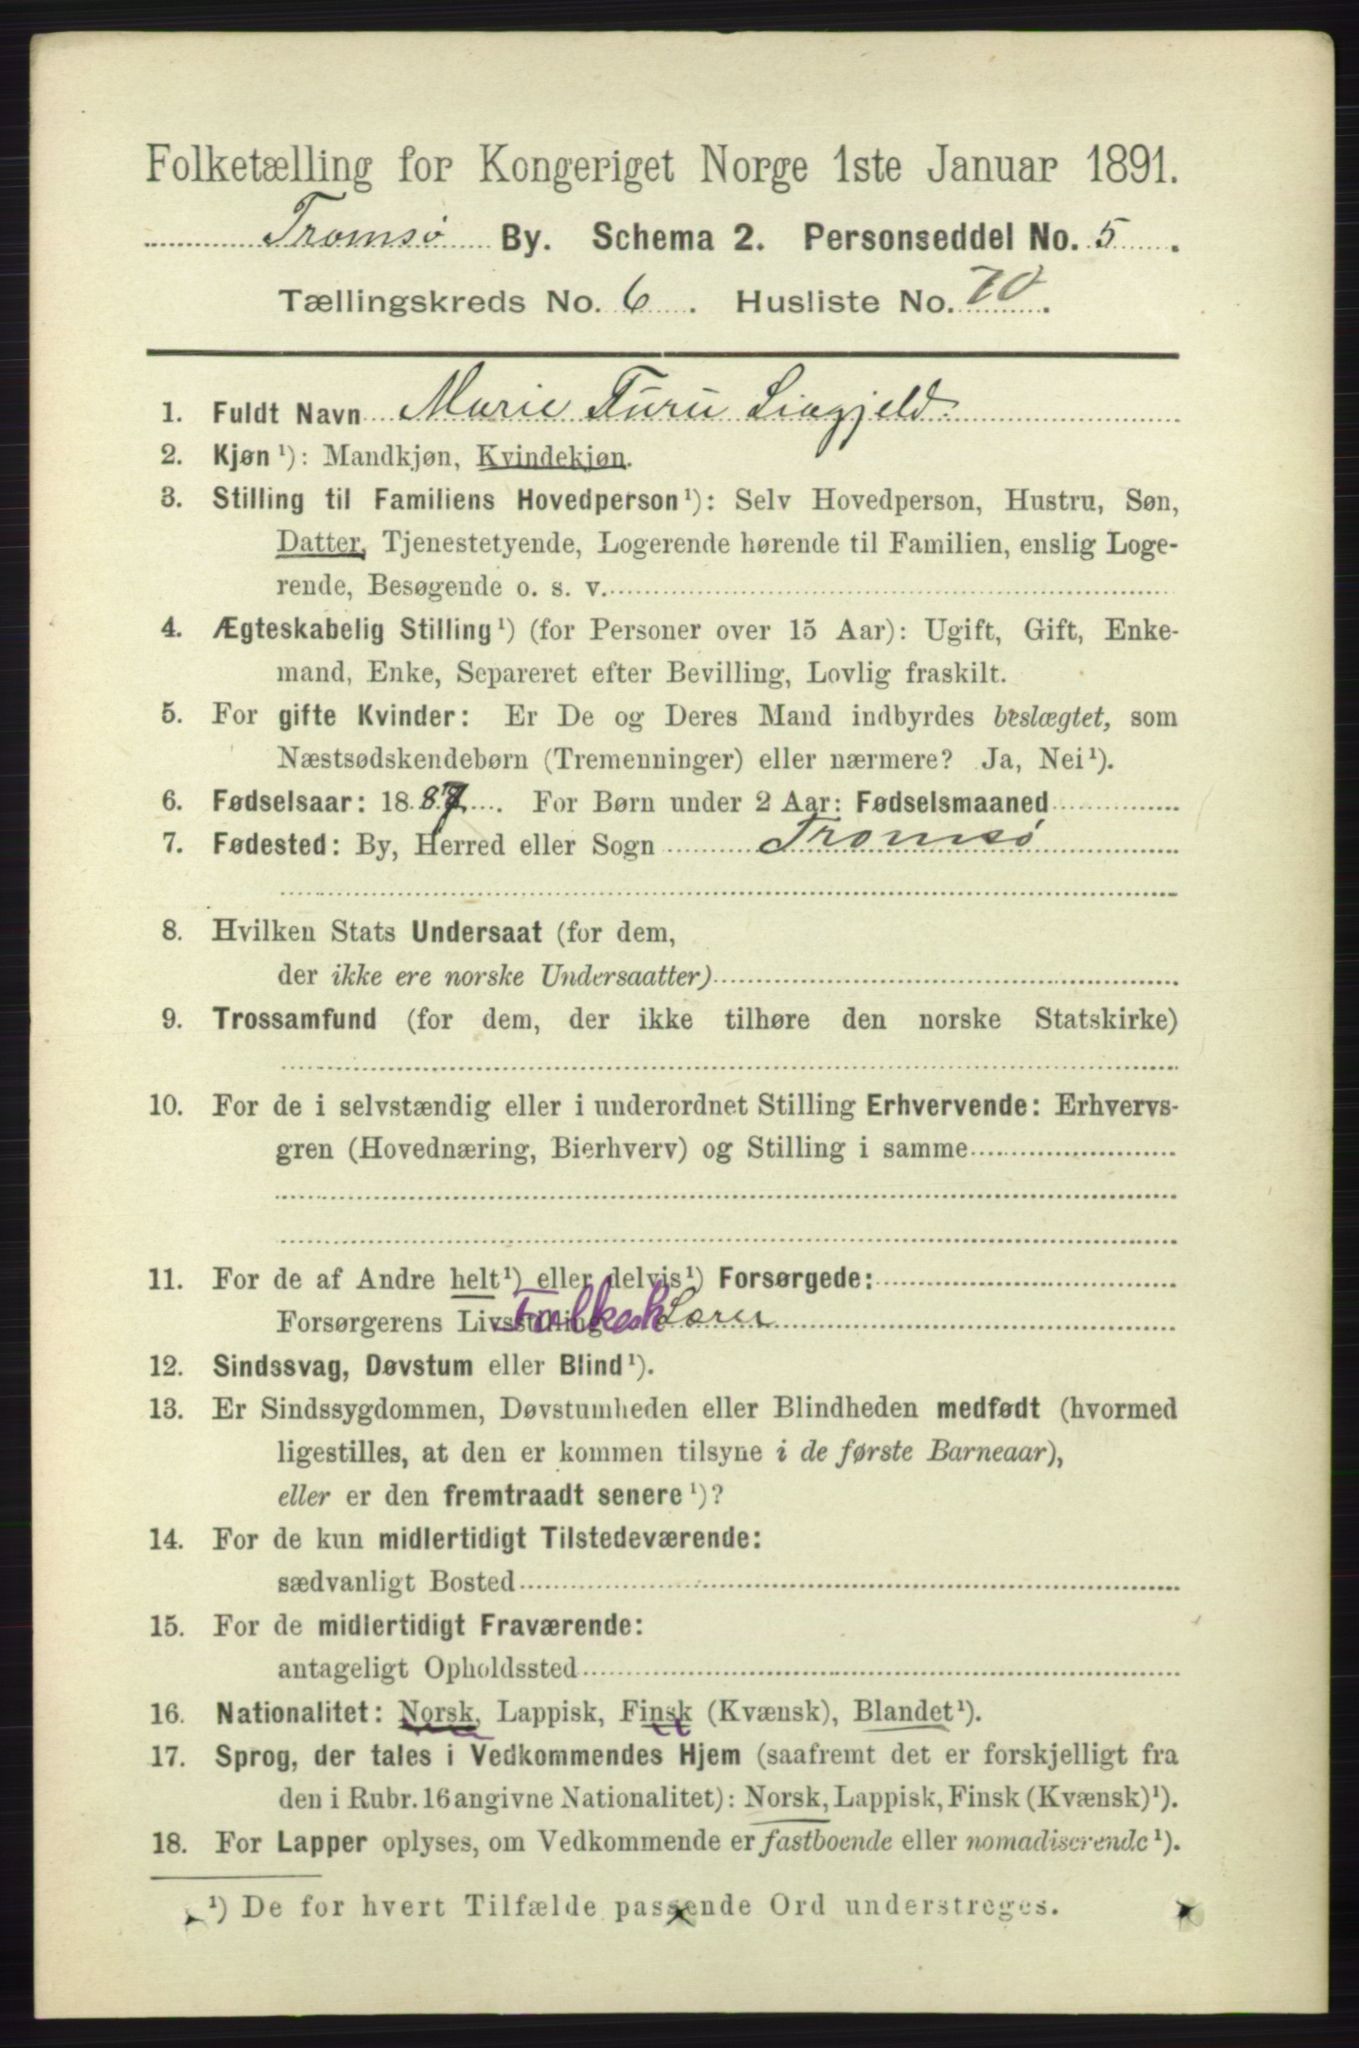 Folketælling for Kongeriget Norge 1ste Januar 1891.
Tromsø By. Schema 2. Personseddel No. 5.
Tællingskreds No. 6. Husliste No. 70.
1. Fuldt Navn Marie Furu Liagjeld
2. Kjøn ¹): Mandkjøn, Kvindekjøn.
3. Stilling til Familiens Hovedperson¹): Selv Hovedperson, Hustru, Søn,
Datter, Tjenestetyende, Logerende hørende til Familien, enslig Loge-
rende, Besøgende o. s. v.
4. Ægteskabelig Stilling¹) (for Personer over 15 Aar): Ugift, Gift, Enke-
mand, Enke, Separeret efter Bevilling, Lovlig fraskilt.
5. For gifte Kvinder: Er De og Deres Mand indbyrdes beslægtet, som
Næstsødskendebørn (Tremenninger) eller nærmere? Ja, Nei¹).
6. Fødselsaar: 1887. For Børn under 2 Aar: Fødselsmaaned
7. Fødested: By, Herred eller Sogn Tromsø
8. Hvilken Stats Undersaat (for dem,
der ikke ere norske Undersaatter)
9. Trossamfund (for dem, der ikke tilhøre den norske Statskirke)
10. For de i selvstændig eller i underordnet Stilling Erhvervende: Erhvervs-
gren (Hovednæring, Bierhverv) og Stilling i samme
11. For de af Andre helt¹) eller delvis¹) Forsørgede:
Forsørgerens Livsstilling
12. Sindssvag, Døvstum eller Blind¹).
13. Er Sindssygdommen, Døvstumheden eller Blindheden medfødt (hvormed
ligestilles, at den er kommen tilsyne i de første Barneaar),
eller er den fremtraadt senere ¹)?
14. For de kun midlertidigt Tilstedeværende:
sædvanligt Bosted
15. For de midlertidigt Fraværende:
antageligt Opholdssted
16. Nationalitet: Norsk, Lappisk, Finsk (Kvænsk), Blandet¹).
17. Sprog, der tales i Vedkommendes Hjem (saafremt det er forskjelligt fra
den i Rubr. 16 angivne Nationalitet): Norsk, Lappisk, Finsk (Kvænsk)¹).
18. For Lapper oplyses, om Vedkommende er fastboende eller nomadiserende ¹).
¹) De for hvert Tilfælde passende Ord understreges.